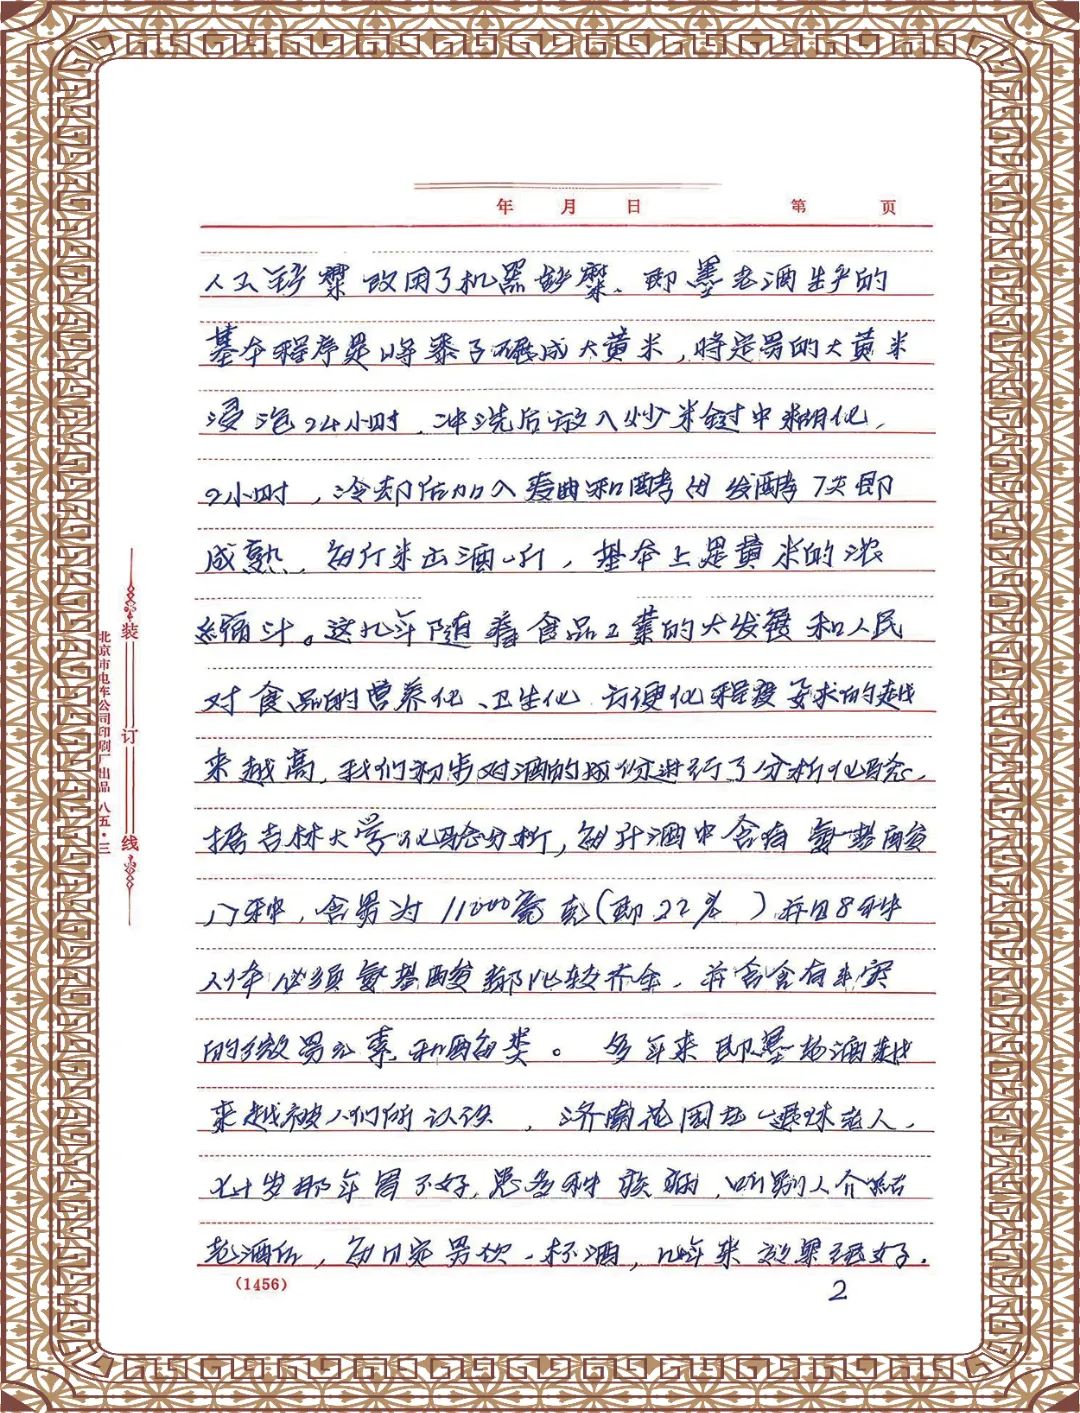 年 月 日 第 页
人工铲糜改用了机器铲糜、即墨老酒生产的
基本程序是将黍子碾成大黄米，将定量的大黄米
浸泡24小时，冲洗后放入炒米锅中糊化，
2小时，冷却后加入麦曲和酵母发酵7天即
成熟，每斤米出酒一斤，基本上是黄米的浓
缩汁。这几年随着食品工业的大发展和人民
对食品的营养化、卫生化、方便化程度要求的越
来越高，我们初步对酒的成份进行了分析化验，
据吉林大学化验分析，每升酒中含有氨基酸
八种，含量为11000毫克（即22%）并且8种
人体必须氨基酸都比较齐全，并含含有丰富
的微量元素和酶每类。多年来即墨老酒越
来越被人们所认识，济南花园一退休老人，
七十岁那年胃不好，患多种疾病，听别人介绍
老酒后，每日定量饮一杯酒，几年来效果很好．
(1456)
2
装订线
北京市电车公司印刷厂出品 八五·三